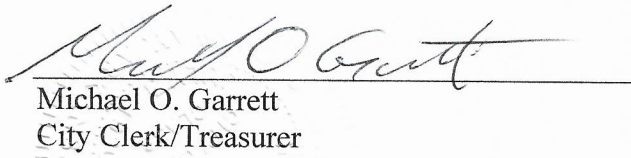 Michael O. Garrett
City Clerk/Treasurer